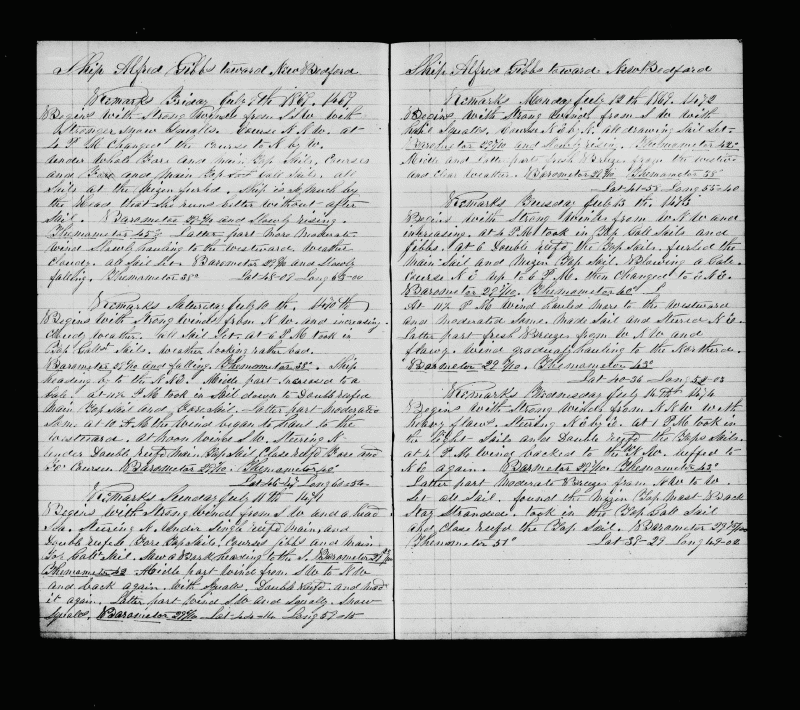 Ship Alfred Gibbs toward New Bedford
Remarks Friday July 9th 1869. 1469
Begins with Strong Winds from S.W. with
Stronger Snow Squalls. Course N.N.W. at
4 P.M. Changed the Course to N by W.
under Whole Fore and Main Top Sails, Courses
and Fore and Main Top Gallt Sails. all
Sails at the Mizen furled. Ship is so much by
the Head that she runs better without after
Sail. Barometer and Slowly rising.
Themometer 45° Latter part More Moderate
Wind Slowly hauling to the Westward, Weather
Cloudy. all Sail Set. Barometer and Slowly
falling. Themometer 38° Lat 48-09 Long 63-00
Remarks Saturday July 10th. 1470th
Begins with Strong Winds from N.W. and increasing.
Cloudy Weather. all Sail Set. at 6 P.M. took in
Top Gallt Sails. Weather Looking rather bad.
Barometer and falling. Themometer 38°. Ship
heading by to the N.E. Middle part increased to a
Gale. at P.M. took in Sail down to Double reefed
Main Top Sail and Fore Sail. Latter part Moderate
Some. at 10 A.M. the Wind began to Haul to the
Westward. at Noon Wind S.W. Steering N.
under Double reefd Main Top Sail Close reefd Fore and
Fore Courses. Barometer Themometer 40°
Lat 46-47 Long 60-54
Remarks Sunday July 11th 1471
Begins with Strong Wind from S.W. and a head
Sea. Steering N. under Single reefd Main, and
Double reefed Fore Top Sails. Courses jibs and Main
Top Gallt Sail. Saw a Bark Heading to the S. Barometer
Themometer 42 Middle part Wind from S.W. to N.W.
and back again, with Squalls. Double reefd. and
it again. Latter part Wind S.W. and Squally. Snow
Squalls. Barometer Lat 44-40 Long 57-15
Ship Alfred Gibbs toward New Bedford
Remarks Monday July 12th 1869. 1472
Begins with Strong Wind from S.W. with
Squalls. Course N.E. by N. all drawing Sail Set.
Barometer and Slowly rising. Themometer 42°
Middle and Latter parts fresh Breeze from the Westward
and Clear Weather. Barometer Themometer 58°
Lat 41-58 Long 55-40
Remarks Tuesday July 13th. 1473
Begins with Strong Winds from W.N.W. and
increasing. at 4 P.M. took in Top Gallt Sails and
jibbs. at 6 Double reefd the Top Sails. furled the
Main Sail and Mizen Top Sail. Blowing a Gale.
Course N.E. up to 6 P.M. then Changed to E.N.E.
Barometer Themometer 60°
At P.M. Wind hauled More to the Westward
and Moderated Some. Made Sail and Steered N.E.
Latter part fresh Breeze from N.W. and
flawy. Wind gradually hauling to the Northerd.
Barometer Themometer 43°
Lat 40-36 Long 54-03
Remarks Wednesday July 14th 1474
Begins with Strong Winds from N.N.W. with
heavy flaws. Steering N.E. by E. at 1 P.M. took in
the Light Sails and Double Reefd the Top Sails.
at 4 P.M. Wind backed to the W. Luffed to
N.E. again. Barometer Themometer 43°
Latter part Moderate Breeze from N.W. to W.
Set all Sail. found the Mizen Top Mast Back
Stay Stranded. took in the Top Gallt Sail
and Close reefd the Top Sail. Barometer
Themometer 51° Lat 38-29 Long 49-02